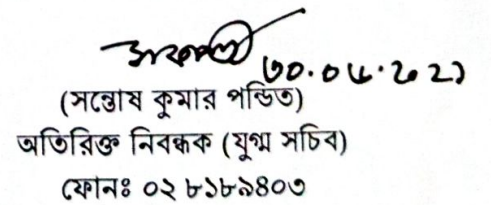 ৩০.০৬.২০২১
(সন্তোষ কুমার পন্ডিত)
অতিরিক্ত নিবন্ধক (যুগ্ম সচিব)
ফোনঃ ০২ ৮১৮৯৪০৩